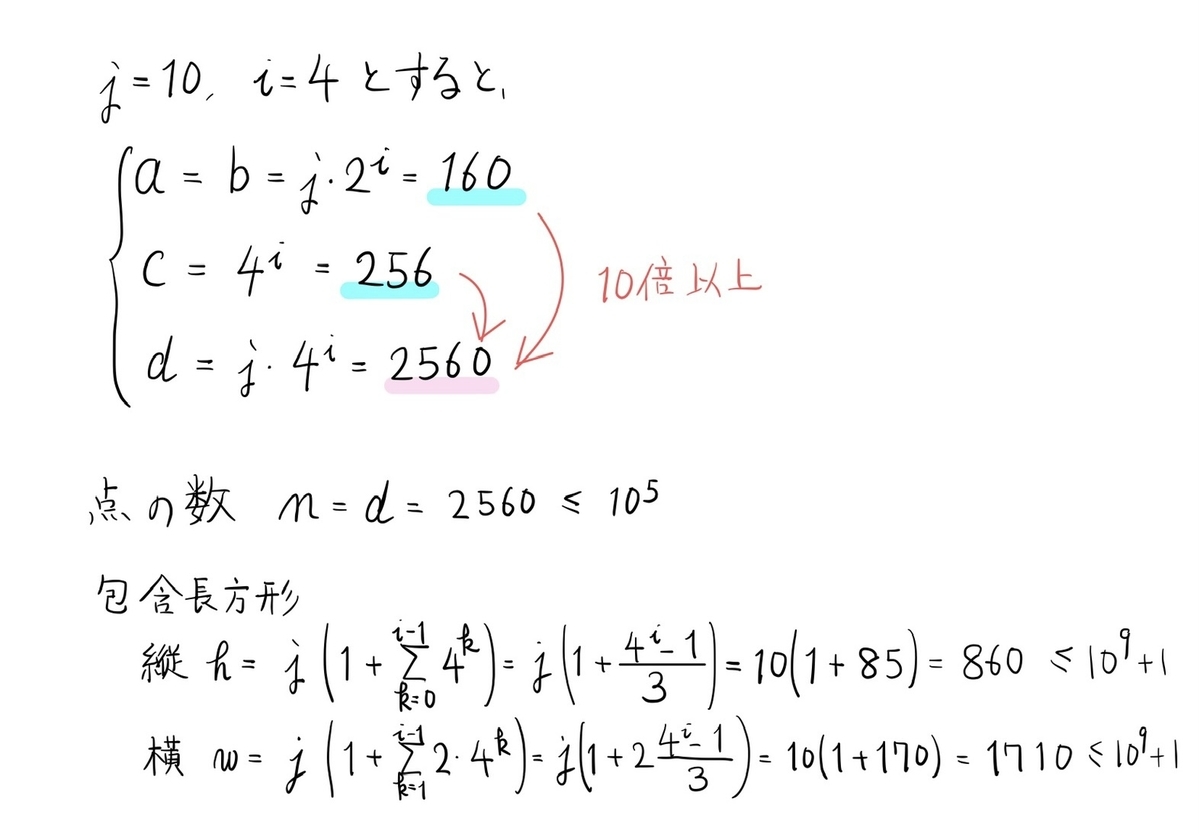 j = 10, i = 4 とすると,
a = b = j・2^i = 160
c = 4^i = 256
10倍以上
d = j・4^i = 2560
点の数 n = d = 2560 ≤ 10^5
包含長方形
縦 h = j(1 + Σ_{k=0}^{i-1} 4^k) = j(1 + (4^i - 1)/3) = 10(1 + 85) = 860 ≤ 10^9 + 1
横 w = j(1 + Σ_{k=1}^{i-1} 2・4^k) = j(1 + 2 (4^i - 1)/3) = 10(1 + 170) = 1710 ≤ 10^9 + 1